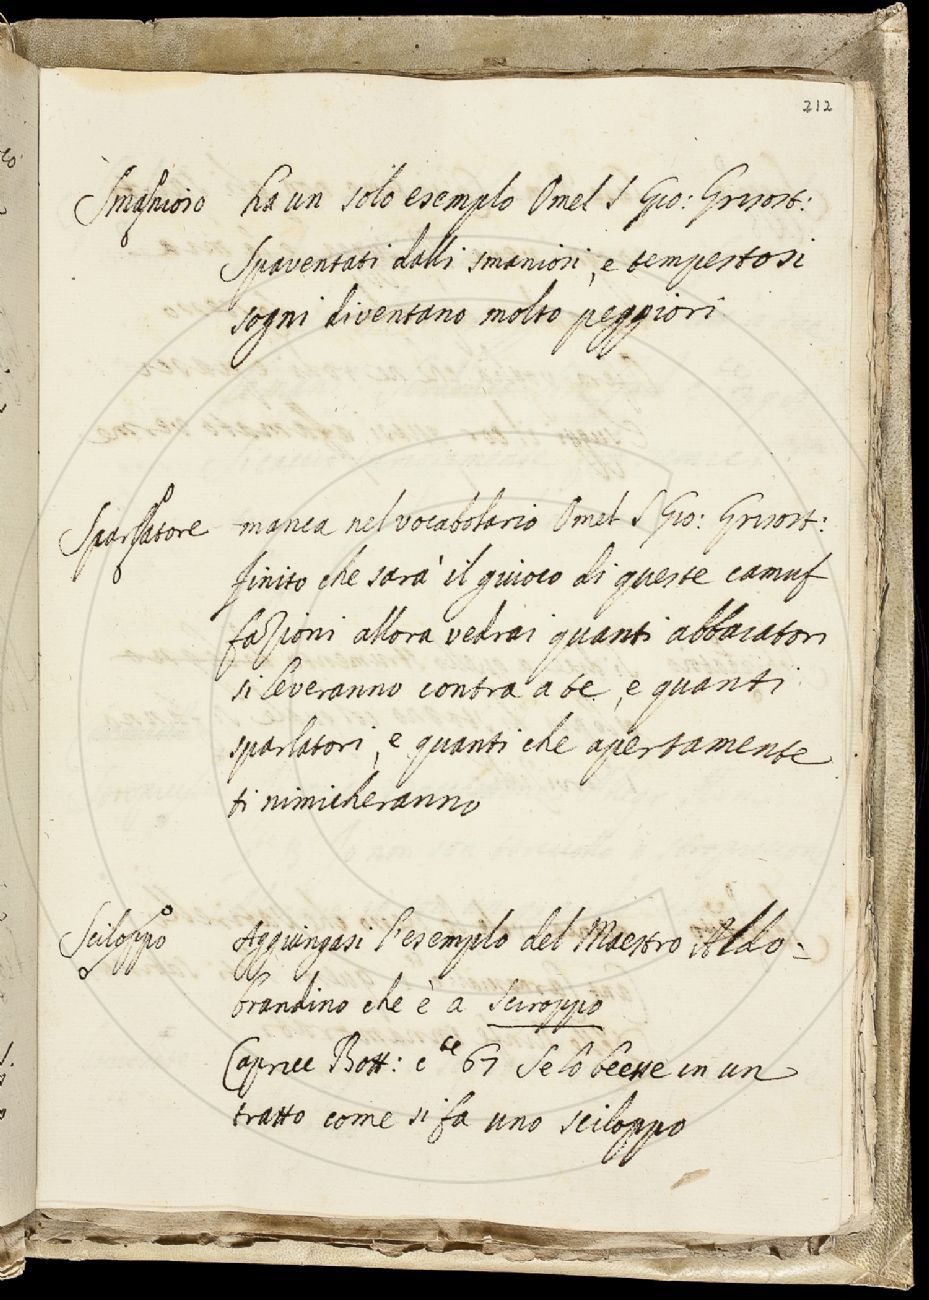 212
Smanioso ha un solo esemplo Omel S Gio: Grisost:
Spaventati dalli smaniosi, e tempestosi
sogni diventano molto peggiori
Sparlatore manca nel vocabolario Omel S Gio: Grisost:
finito che sara' il giuoco di queste camuf
fazioni allora vedrai quanti abbaiatori
si leveranno contra a te, e quanti
sparlatori, e quanti che apertamente
ti nimicheranno
Sciloppo Aggiungasi l'esemplo del Maestro Aldo-
brandino che è a Sciroppo
Capricc Bott: c te 67 Se lo beesse in un
tratto come si fa uno sciloppo